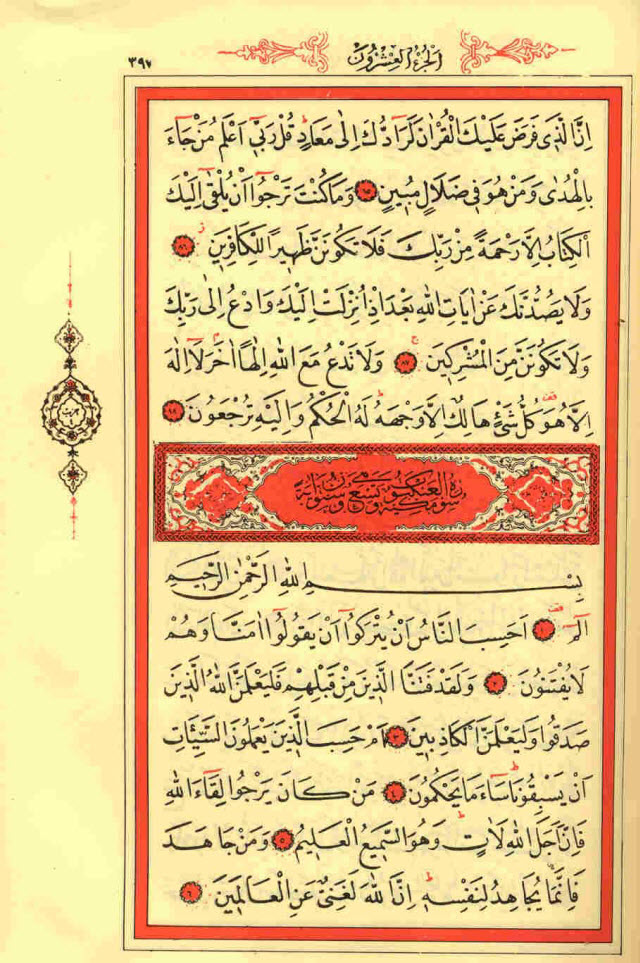 الجزء العشرون
٣٩٧
اِنَّ الَّذ۪ي فَرَضَ عَلَيْكَ الْقُرْاٰنَ لَرَٓادُّكَ اِلٰى مَعَادٍ قُلْ رَبّ۪ٓي اَعْلَمُ مَنْ جَٓاءَ
بِالْهُدٰى وَمَنْ هُوَ ف۪ي ضَلَالٍ مُب۪ينٍ ٨٥ وَمَا كُنْتَ تَرْجُٓوا اَنْ يُلْقٰٓى اِلَيْكَ
الْكِتَابُ اِلَّا رَحْمَةً مِنْ رَبِّكَ فَلَا تَكُونَنَّ ظَه۪يرًا لِلْكَافِر۪ينَ ٨٦
وَلَا يَصُدُّنَّكَ عَنْ اٰيَاتِ اللّٰهِ بَعْدَ اِذْ اُنْزِلَتْ اِلَيْكَ وَادْعُ اِلٰى رَبِّكَ
وَلَا تَكُونَنَّ مِنَ الْمُشْرِك۪ينَ ٨٧ وَلَا تَدْعُ مَعَ اللّٰهِ اِلٰهًا اٰخَرَ لَٓا اِلٰهَ
اِلَّا هُوَ كُلُّ شَيْءٍ هَالِكٌ اِلَّا وَجْهَهُ لَهُ الْحُكْمُ وَاِلَيْهِ تُرْجَعُونَ ٨٨
سورة العنكبوت
مكية وهي تسع وستون اية
بِسْمِ اللّٰهِ الرَّحْمٰنِ الرَّح۪يمِ
الٓمٓ ١ اَحَسِبَ النَّاسُ اَنْ يُتْرَكُٓوا اَنْ يَقُولُٓوا اٰمَنَّا وَهُمْ
لَا يُفْتَنُونَ ٢ وَلَقَدْ فَتَنَّا الَّذ۪ينَ مِنْ قَبْلِهِمْ فَلَيَعْلَمَنَّ اللّٰهُ الَّذ۪ينَ
صَدَقُوا وَلَيَعْلَمَنَّ الْكَاذِب۪ينَ ٣ اَمْ حَسِبَ الَّذ۪ينَ يَعْمَلُونَ السَّيِّـَٔاتِ
اَنْ يَسْبِقُونَا سَٓاءَ مَا يَحْكُمُونَ ٤ مَنْ كَانَ يَرْجُوا لِقَٓاءَ اللّٰهِ
فَاِنَّ اَجَلَ اللّٰهِ لَاٰتٍ وَهُوَ السَّم۪يعُ الْعَل۪يمُ ٥ وَمَنْ جَاهَدَ
فَاِنَّمَا يُجَاهِدُ لِنَفْسِه۪ اِنَّ اللّٰهَ لَغَنِيٌّ عَنِ الْعَالَم۪ينَ ٦